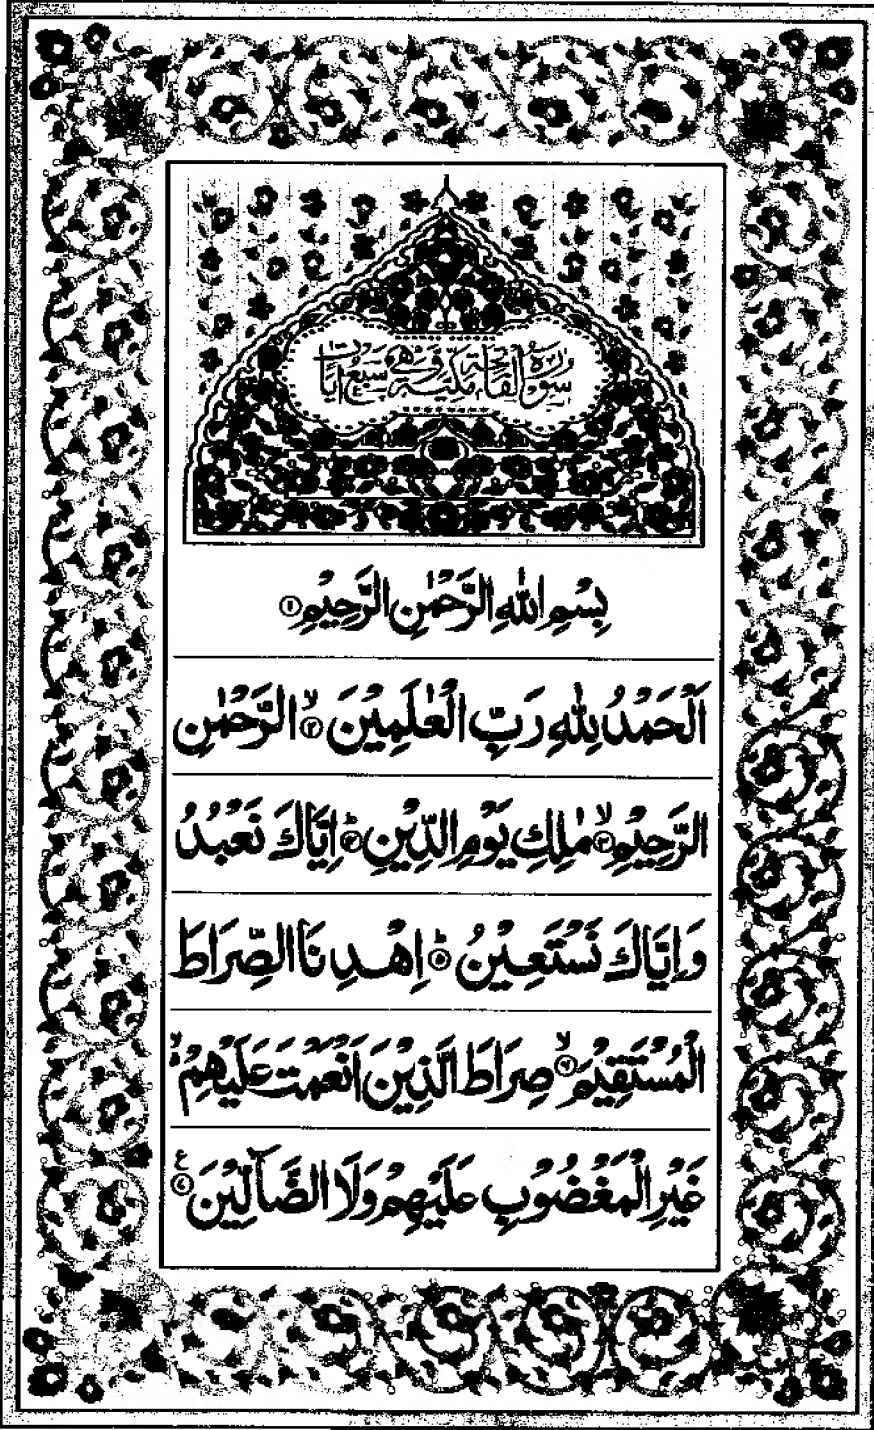 سُوْرَةُ الْفَاتِحَةِ مَكِّيَّةٌ وَّهِيَ سَبْعُ اٰيَاتٍ
بِسْمِ اللّٰهِ الرَّحْمٰنِ الرَّحِيْمِ ۝١
اَلْحَمْدُ لِلّٰهِ رَبِّ الْعٰلَمِيْنَ ۝٢ۙ الرَّحْمٰنِ
الرَّحِيْمِ ۝٣ۙ مٰلِكِ يَوْمِ الدِّيْنِ ۝٤ؕ اِيَّاكَ نَعْبُدُ
وَاِيَّاكَ نَسْتَعِيْنُ ۝٥ؕ اِهْدِنَا الصِّرَاطَ
الْمُسْتَقِيْمَ ۝٦ۙ صِرَاطَ الَّذِيْنَ اَنْعَمْتَ عَلَيْهِمْ ۙ
غَيْرِ الْمَغْضُوْبِ عَلَيْهِمْ وَلَا الضَّآلِّيْنَ ۝٧ ع